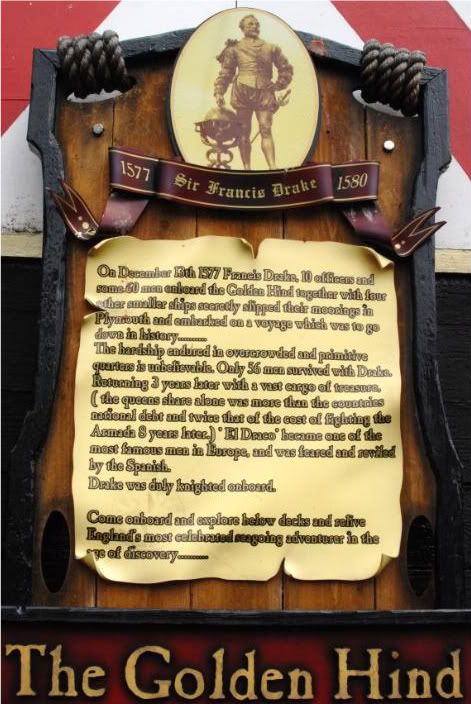 1577 Sir Francis Drake 1580
On December 13th 1577 Francis Drake, 10 officers and
some 60 men onboard the Golden Hind together with four
other smaller ships secretly slipped their moorings in
Plymouth and embarked on a voyage which was to go
down in history..........
The hardship endured in overcrowded and primitive
quarters is unbelievable. Only 56 men survived with Drake.
Returning 3 years later with a vast cargo of treasure.
( the queens share alone was more than the countries
national debt and twice that of the cost of fighting the
Armada 8 years later.) "El Draco" became one of the
most famous men in Europe, and was feared and reviled
by the Spanish.
Drake was duly knighted onboard.
Come onboard and explore below decks and relive
England's most celebrated seagoing adventurer in the
age of discovery..........
The Golden Hind